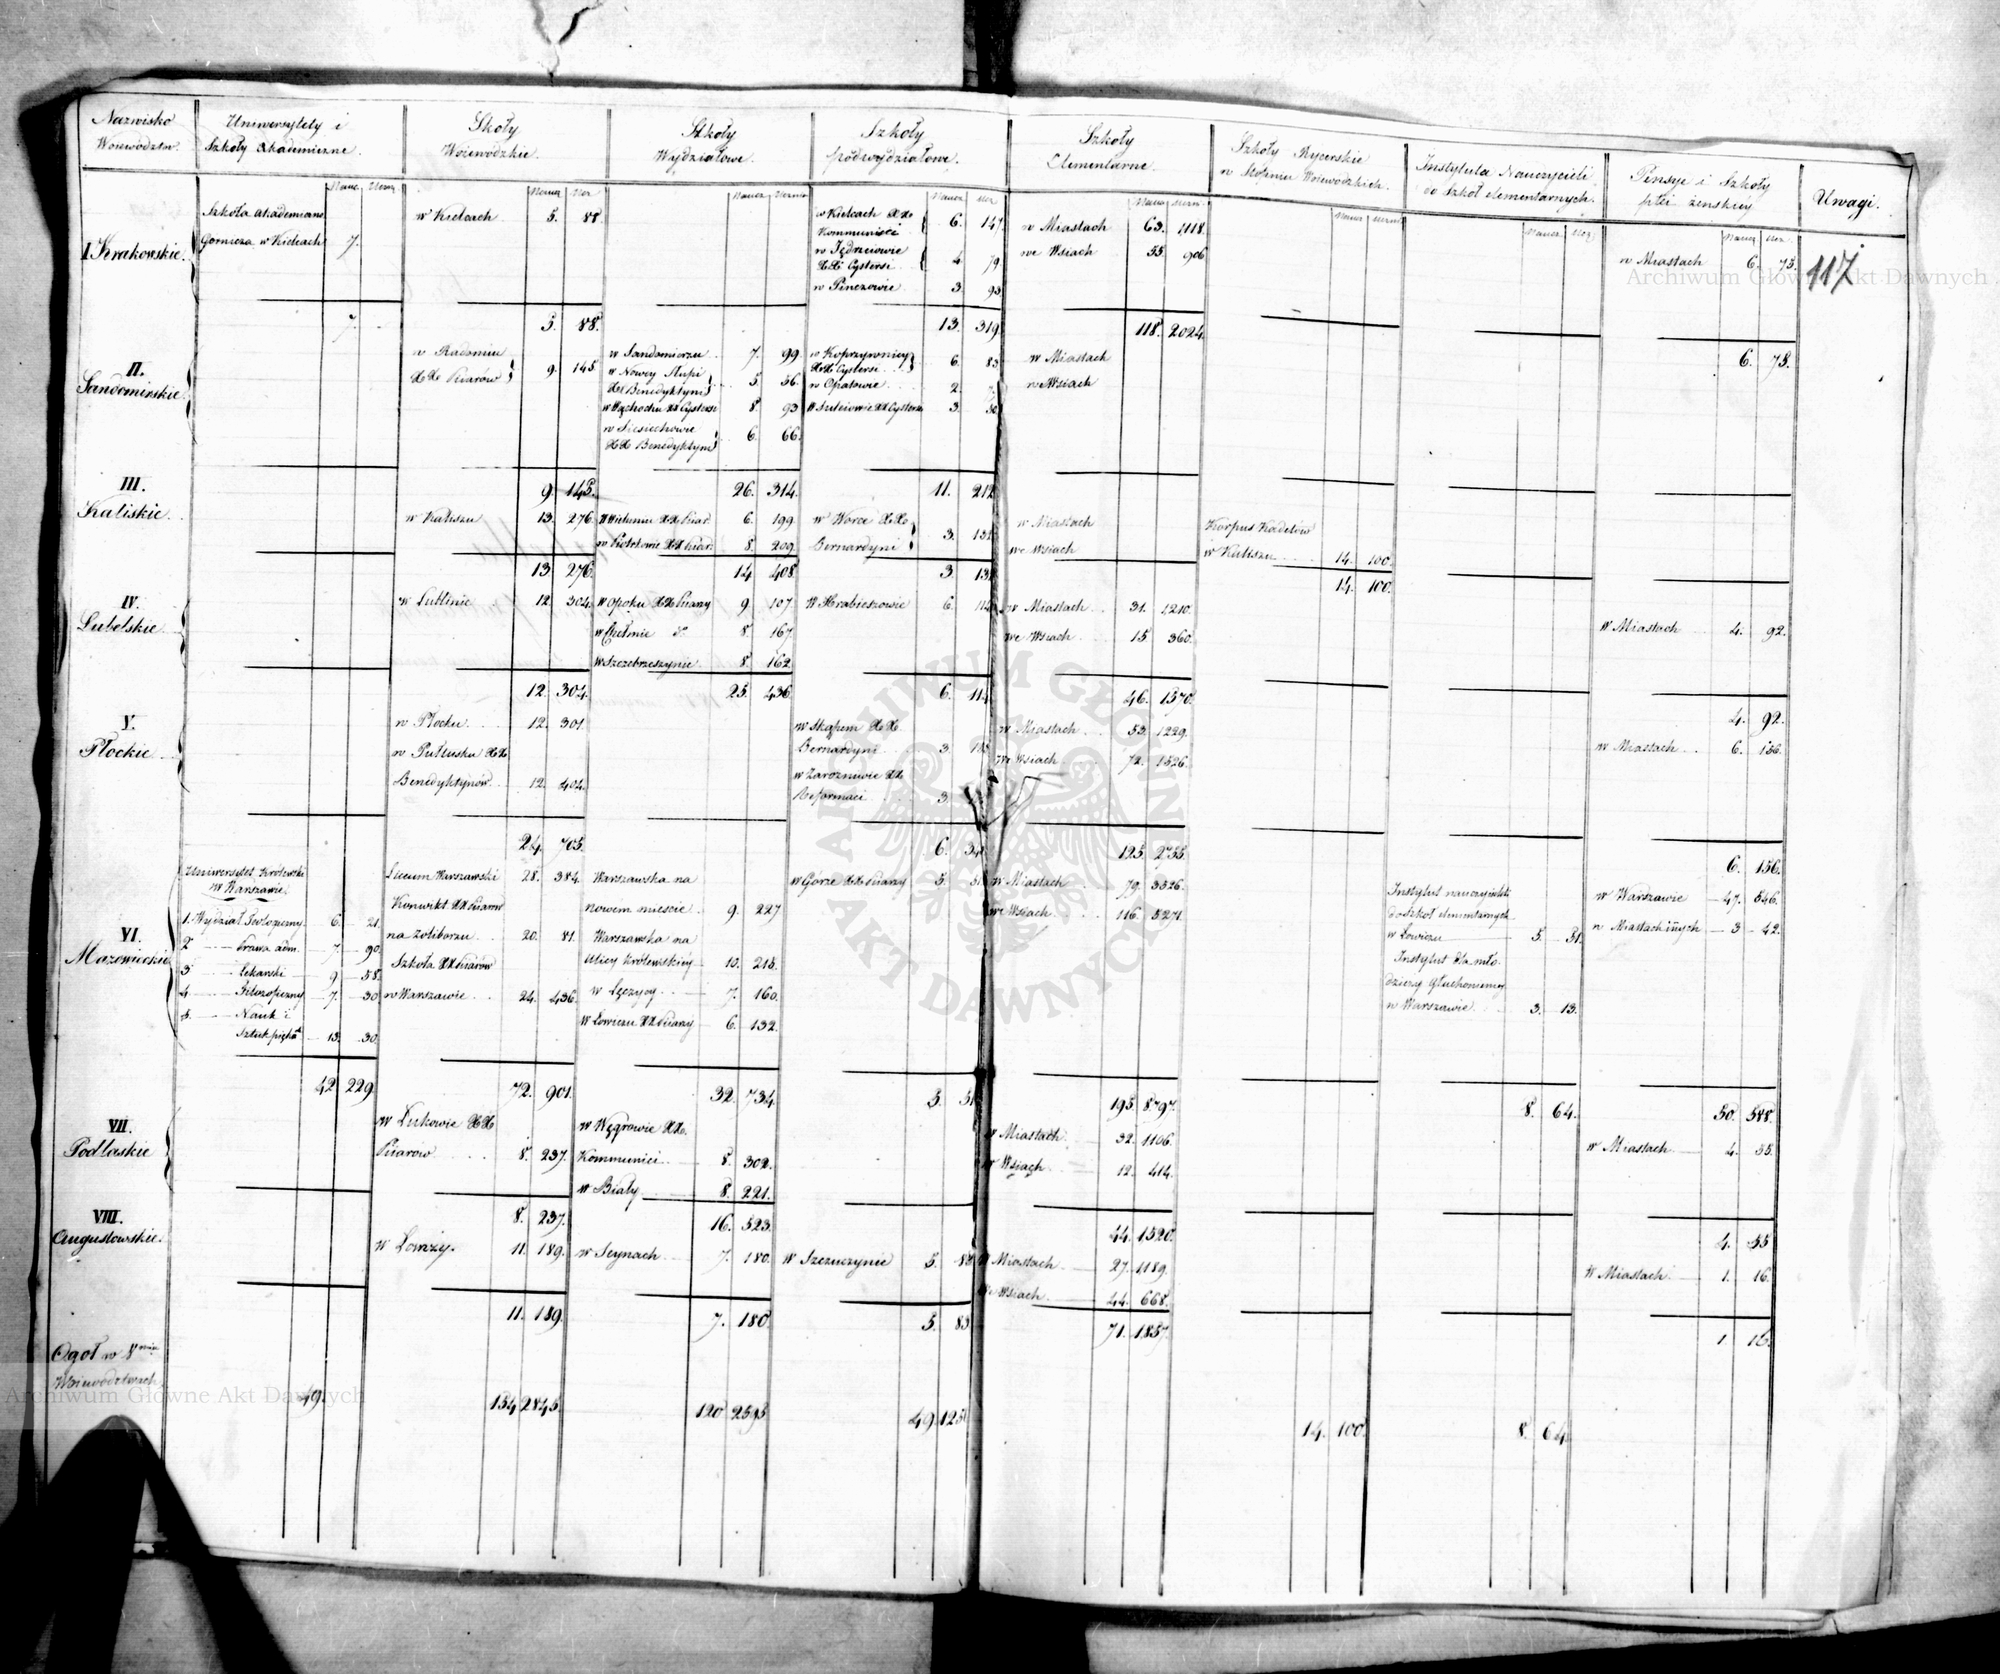 Nazwisko Woiewodztw
Uniwersytety i Szkoły Akademiczne.
Skoły Woiewodzkie.
Szkoły Wydziałowe.
Szkoły podwydziałowe.
Szkoły Elementarne.
Szkoły Rycerskie w Stopniu Woiewodzkich.
Instytuta Nauczycieli do Szkoł elementarnych.
Pensye i Szkoły płci żenskiey
Uwagi.
117
I Krakowskie.
Szkoła Akademiczna
Gornicza w Kielcach 7.
7.
w Kielcach 5. 88.
5. 88.
w Kielcach XX. Kommunisci 6. 147.
w Jędrzeiowie XX Cystersi 4. 79
w Pinczowie 3. 93
13. 319.
w Miastach 63. 1118.
we Wsiach 55. 906
118. 2024.
w Miastach 6. 75.
6. 75.
II. Sandomirskie.
w Radomiu XX Piiarów 9. 145
9. 145.
w Sandomierzu 7. 99.
w Nowey Słupi XX Benedyktyni 5. 56.
w Wąchocku XX Cystersi 8. 93
w Sieciechowie XX Benedyktyni 6. 66.
26. 314.
w Koprzywnicy XX Cystersi 6. 83
w Opatowie 2.
w Suleiowie XX Cystersi 3.
11. 212
w Miastach
we Wsiach
III. Kaliskie.
w Kaliszu 13. 276.
13. 276.
w Wieluniu XX Piiar. 6. 199.
w Piotrkowie XX Piiar. 8. 209.
14. 408.
w Warce XX Bernardyni 3. 132
3. 132
w Miastach
we Wsiach
Korpus Kadetów
w Kaliszu 14. 100.
14. 100.
IV. Lubelskie.
w Lublinie 12. 304.
12. 304.
w Opolu XX Piiary 9. 107.
w Chełmie do. 8. 167.
w Szczebrzeszynie 8. 162.
25. 436.
w Hrubieszowie 6. 114
6. 114.
w Miastach 31. 1210.
we Wsiach 15 360.
46. 1570.
w Miastach 4. 92.
4. 92.
V. Płockie.
w Płocku 12. 301.
w Pułtusku XX
Benedyktynów 12. 404.
24. 705.
w Skąpem XX.
Bernardyni 3.
w Zarozniewie XX
Reformaci 3.
6.
w Miastach 53. 1229.
we Wsiach 72. 1526.
125. 2755.
w Miastach 6. 156.
6. 156.
VI. Mazowieckie
Uniwersytet Królewski
w Warszawie.
1. Wydział Teologiczny 6. 21.
2. Prawa adm. 7. 90.
3 Lekarski 9 58.
4. Filozoficzny 7. 30
5. Nauk i
Sztuk piękn. 13. 30.
42 229.
Liceum Warszawski 28. 384.
Konwikt XX Piiarów
na Zoliborzu 20. 81.
Szkoła XX Piiarów
w Warszawie 24. 436.
72. 901.
Warszawska na
nowem mieście 9. 227.
Warszawska na
Ulicy Królewskiey 10. 215.
w Łęczycy 7. 160.
w Łowiczu XX Piiary 6. 132.
32. 734.
w Górze XX Piiary 5. 51
5. 51
w Miastach 79. 3526.
we Wsiach 116. 5271.
195. 8797.
Instytut nauczycieli
do szkół elementarnych
w Łowiczu 5. 51.
Instytut dla mło-
dzieży głuchoniemey
w Warszawie 3. 13.
8. 64.
w Warszawie 47. 546.
w Miastach innych 3 42.
50. 588.
VII. Podlaskie
w Łukowie XX
Piiarow 8. 237.
8. 237.
w Węgrowie XX.
Kommunici 8. 302.
w Biały 8. 221.
16. 523.
w Miastach 32. 1106.
w Wsiach 12. 414.
44. 1520.
w Miastach 4. 55.
4. 55
VIII. Augustowskie.
w Łomży. 11. 189.
11. 189.
w Seynach 7. 180.
7. 180.
w Szczuczynie 5. 83
5. 83
w Miastach 27. 1189.
we Wsiach 44. 668.
71. 1857.
w Miastach 1. 16.
1. 16.
Ogoł w 8miu
Woiewodztwach
49.
154 2845.
120 2595
49 125
14. 100.
8. 64.
Archiwum Główne Akt Dawnych
Archiwum Główne Akt Dawnych
ARCHIWUM GŁÓWNE AKT DAWNYCH